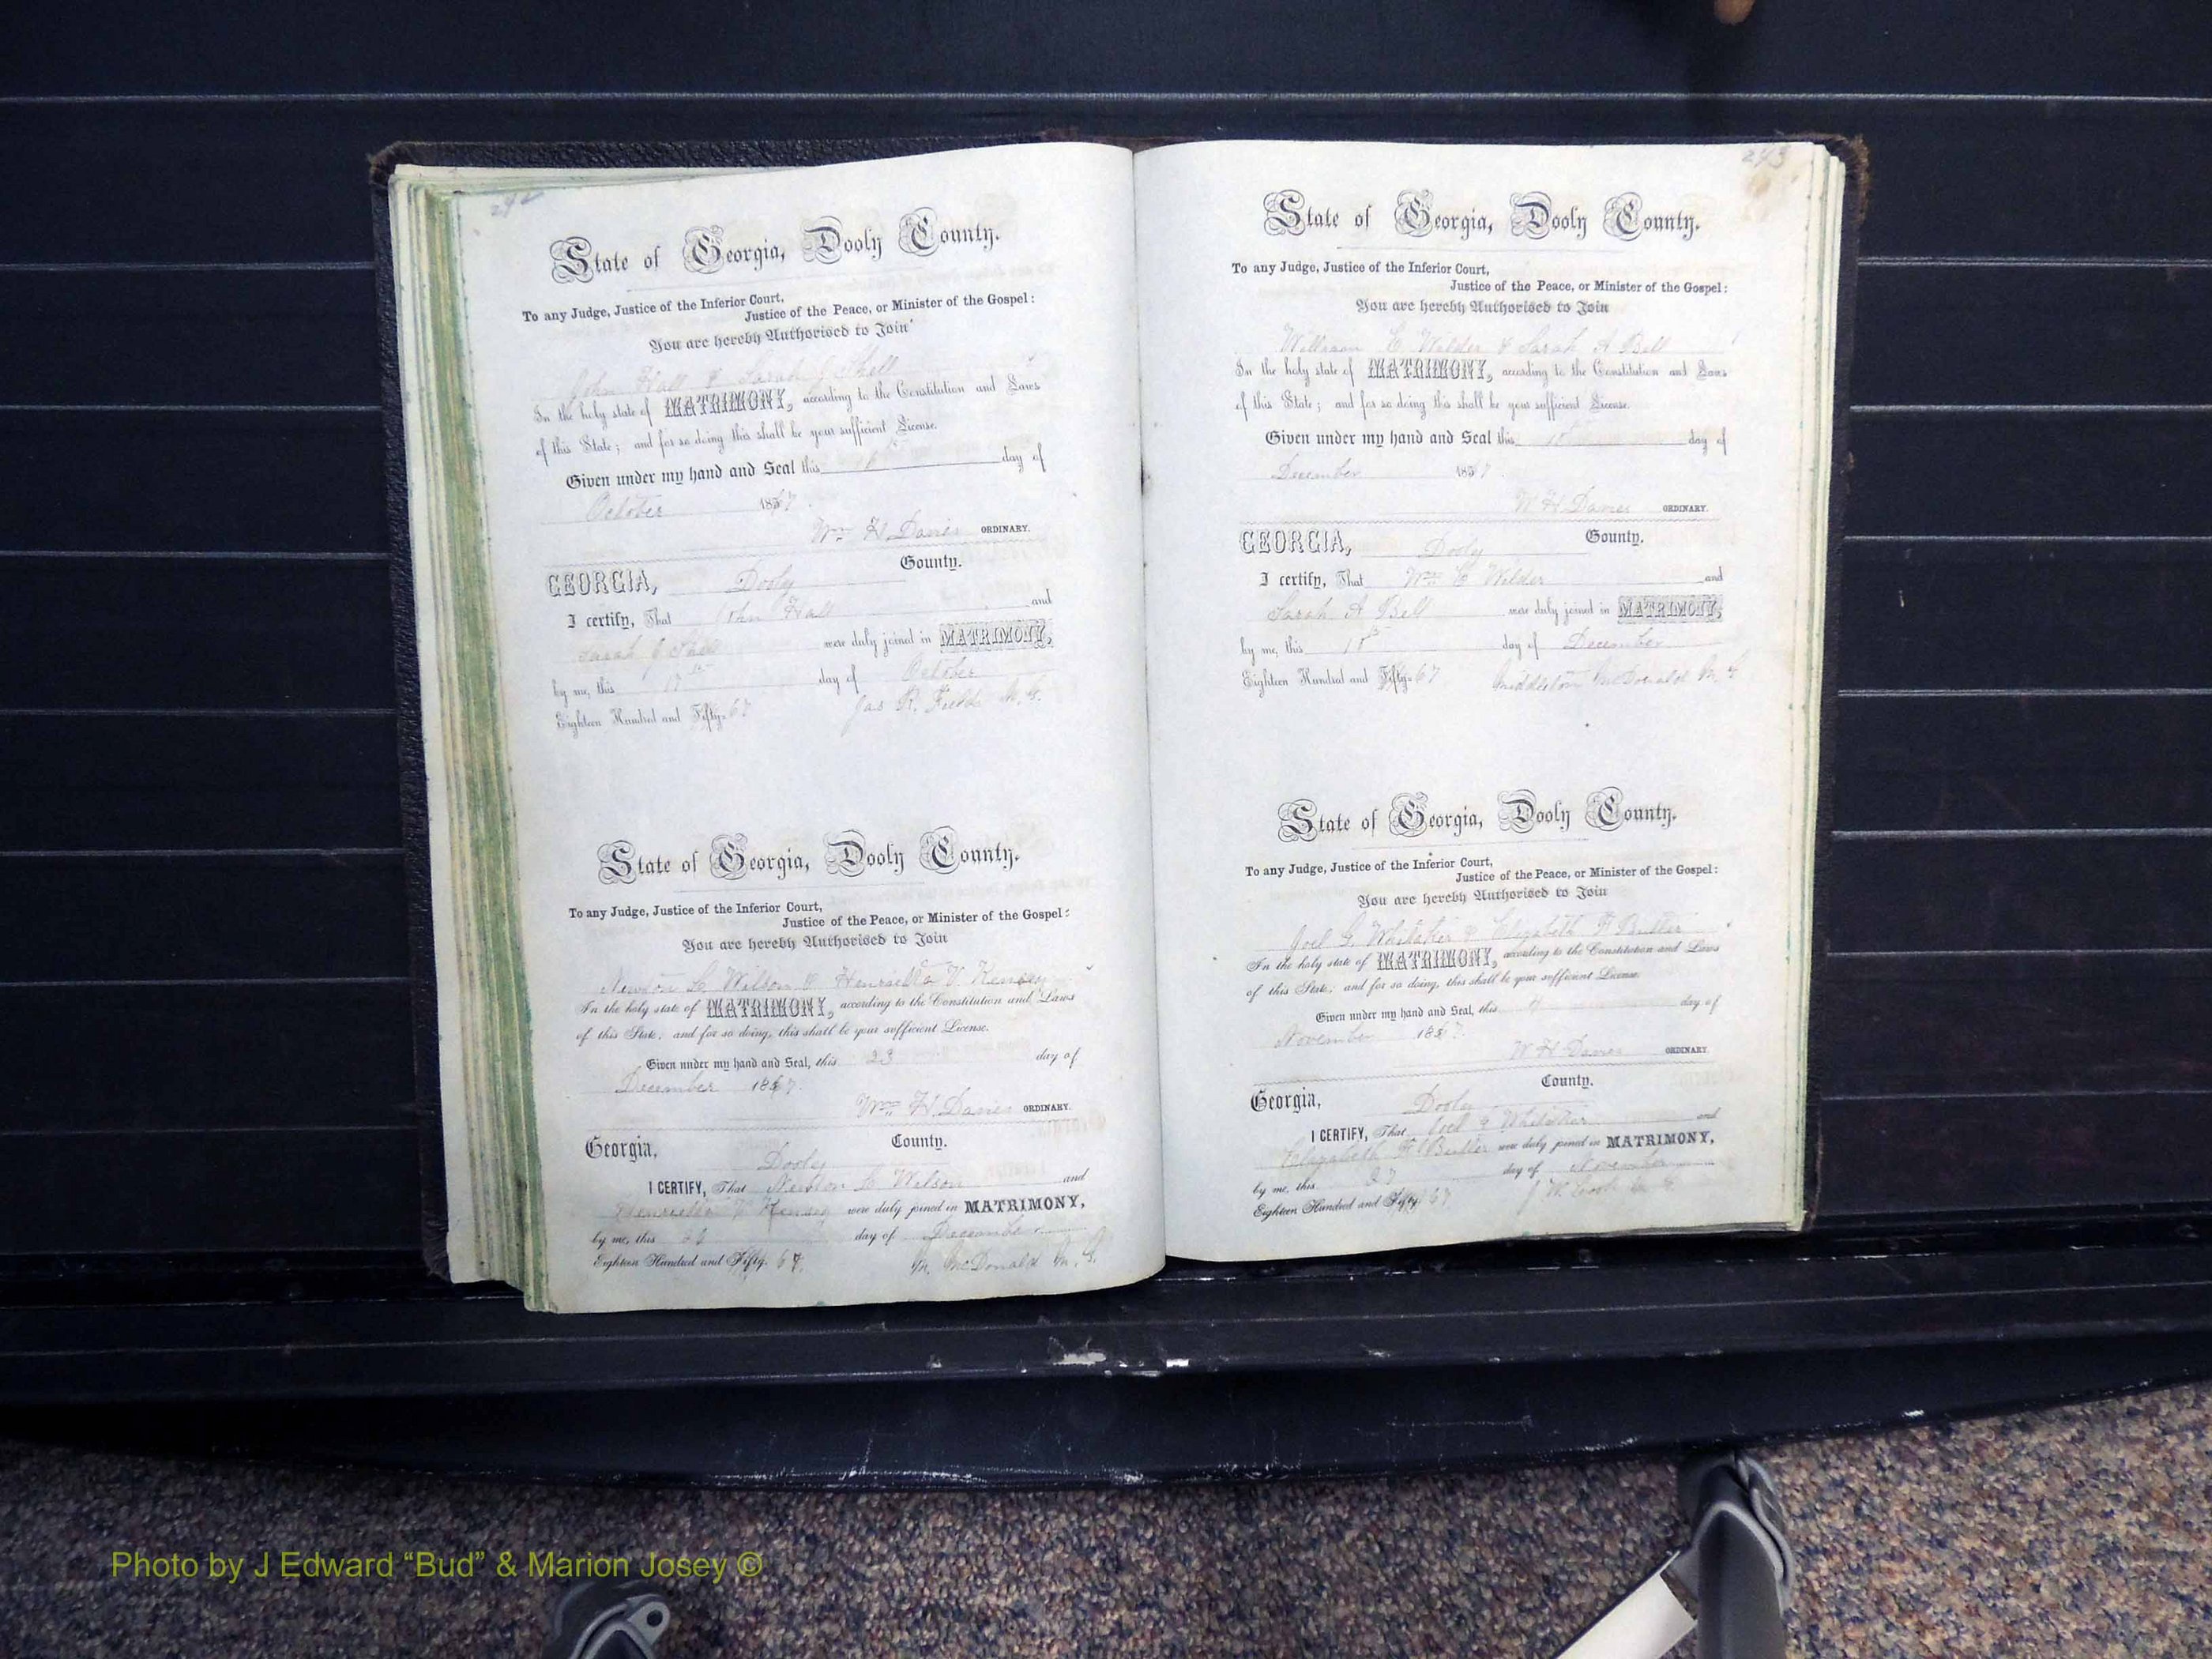 242
State of Georgia, Dooly County.
To any Judge, Justice of the Inferior Court,
Justice of the Peace, or Minister of the Gospel:
You are hereby Authorised to Join
John Hall & Sarah J Shell
In the holy state of MATRIMONY, according to the Constitution and Laws
of this State; and for so doing this shall be your sufficient License.
Given under my hand and Seal this day of
October 1867
Wm H Davies ORDINARY.
GEORGIA, Dooly County.
I certify, That John Hall and
Sarah J Shell were duly joined in MATRIMONY,
by me, this day of October
Eighteen Hundred and Fifty 67 Jas R. Fields M. G.
State of Georgia, Dooly County.
To any Judge, Justice of the Inferior Court,
Justice of the Peace, or Minister of the Gospel:
You are hereby Authorised to Join
Newton L. Wilson & Henrietta V. Kensey
In the holy state of MATRIMONY, according to the Constitution and Laws
of this State, and for so doing, this shall be your sufficient License.
Given under my hand and Seal, this 23 day of
December 1867.
Wm H Davies ORDINARY.
Georgia, Dooly County.
I CERTIFY, That Newton L. Wilson and
Henrietta V Kensey were duly joined in MATRIMONY,
by me, this day of December
Eighteen Hundred and Fifty 67. M. McDonald M. G.
243
State of Georgia, Dooly County.
To any Judge, Justice of the Inferior Court,
Justice of the Peace, or Minister of the Gospel:
You are hereby Authorised to Join
William C Wilder & Sarah A Bell
In the holy state of MATRIMONY, according to the Constitution and Laws
of this State; and for so doing this shall be your sufficient License.
Given under my hand and Seal this day of
December 1867.
W H Davies ORDINARY.
GEORGIA, Dooly County.
I certify, That Wm C Wilder and
Sarah A Bell were duly joined in MATRIMONY,
by me, this day of December
Eighteen Hundred and Fifty 67 Middleton McDonald M G
State of Georgia, Dooly County.
To any Judge, Justice of the Inferior Court,
Justice of the Peace, or Minister of the Gospel:
You are hereby Authorised to Join
Joel G. Whitaker & Elizabeth F Butler
In the holy state of MATRIMONY, according to the Constitution and Laws
of this State, and for so doing, this shall be your sufficient License.
Given under my hand and Seal, this day of
November 1867.
W H Davies ORDINARY.
Georgia, Dooly County.
I CERTIFY, That Joel G Whitaker and
Elizabeth F Butler were duly joined in MATRIMONY,
by me, this 27 day of November
Eighteen Hundred and Fifty 67 J W. Cook M G
Photo by J Edward “Bud” & Marion Josey ©